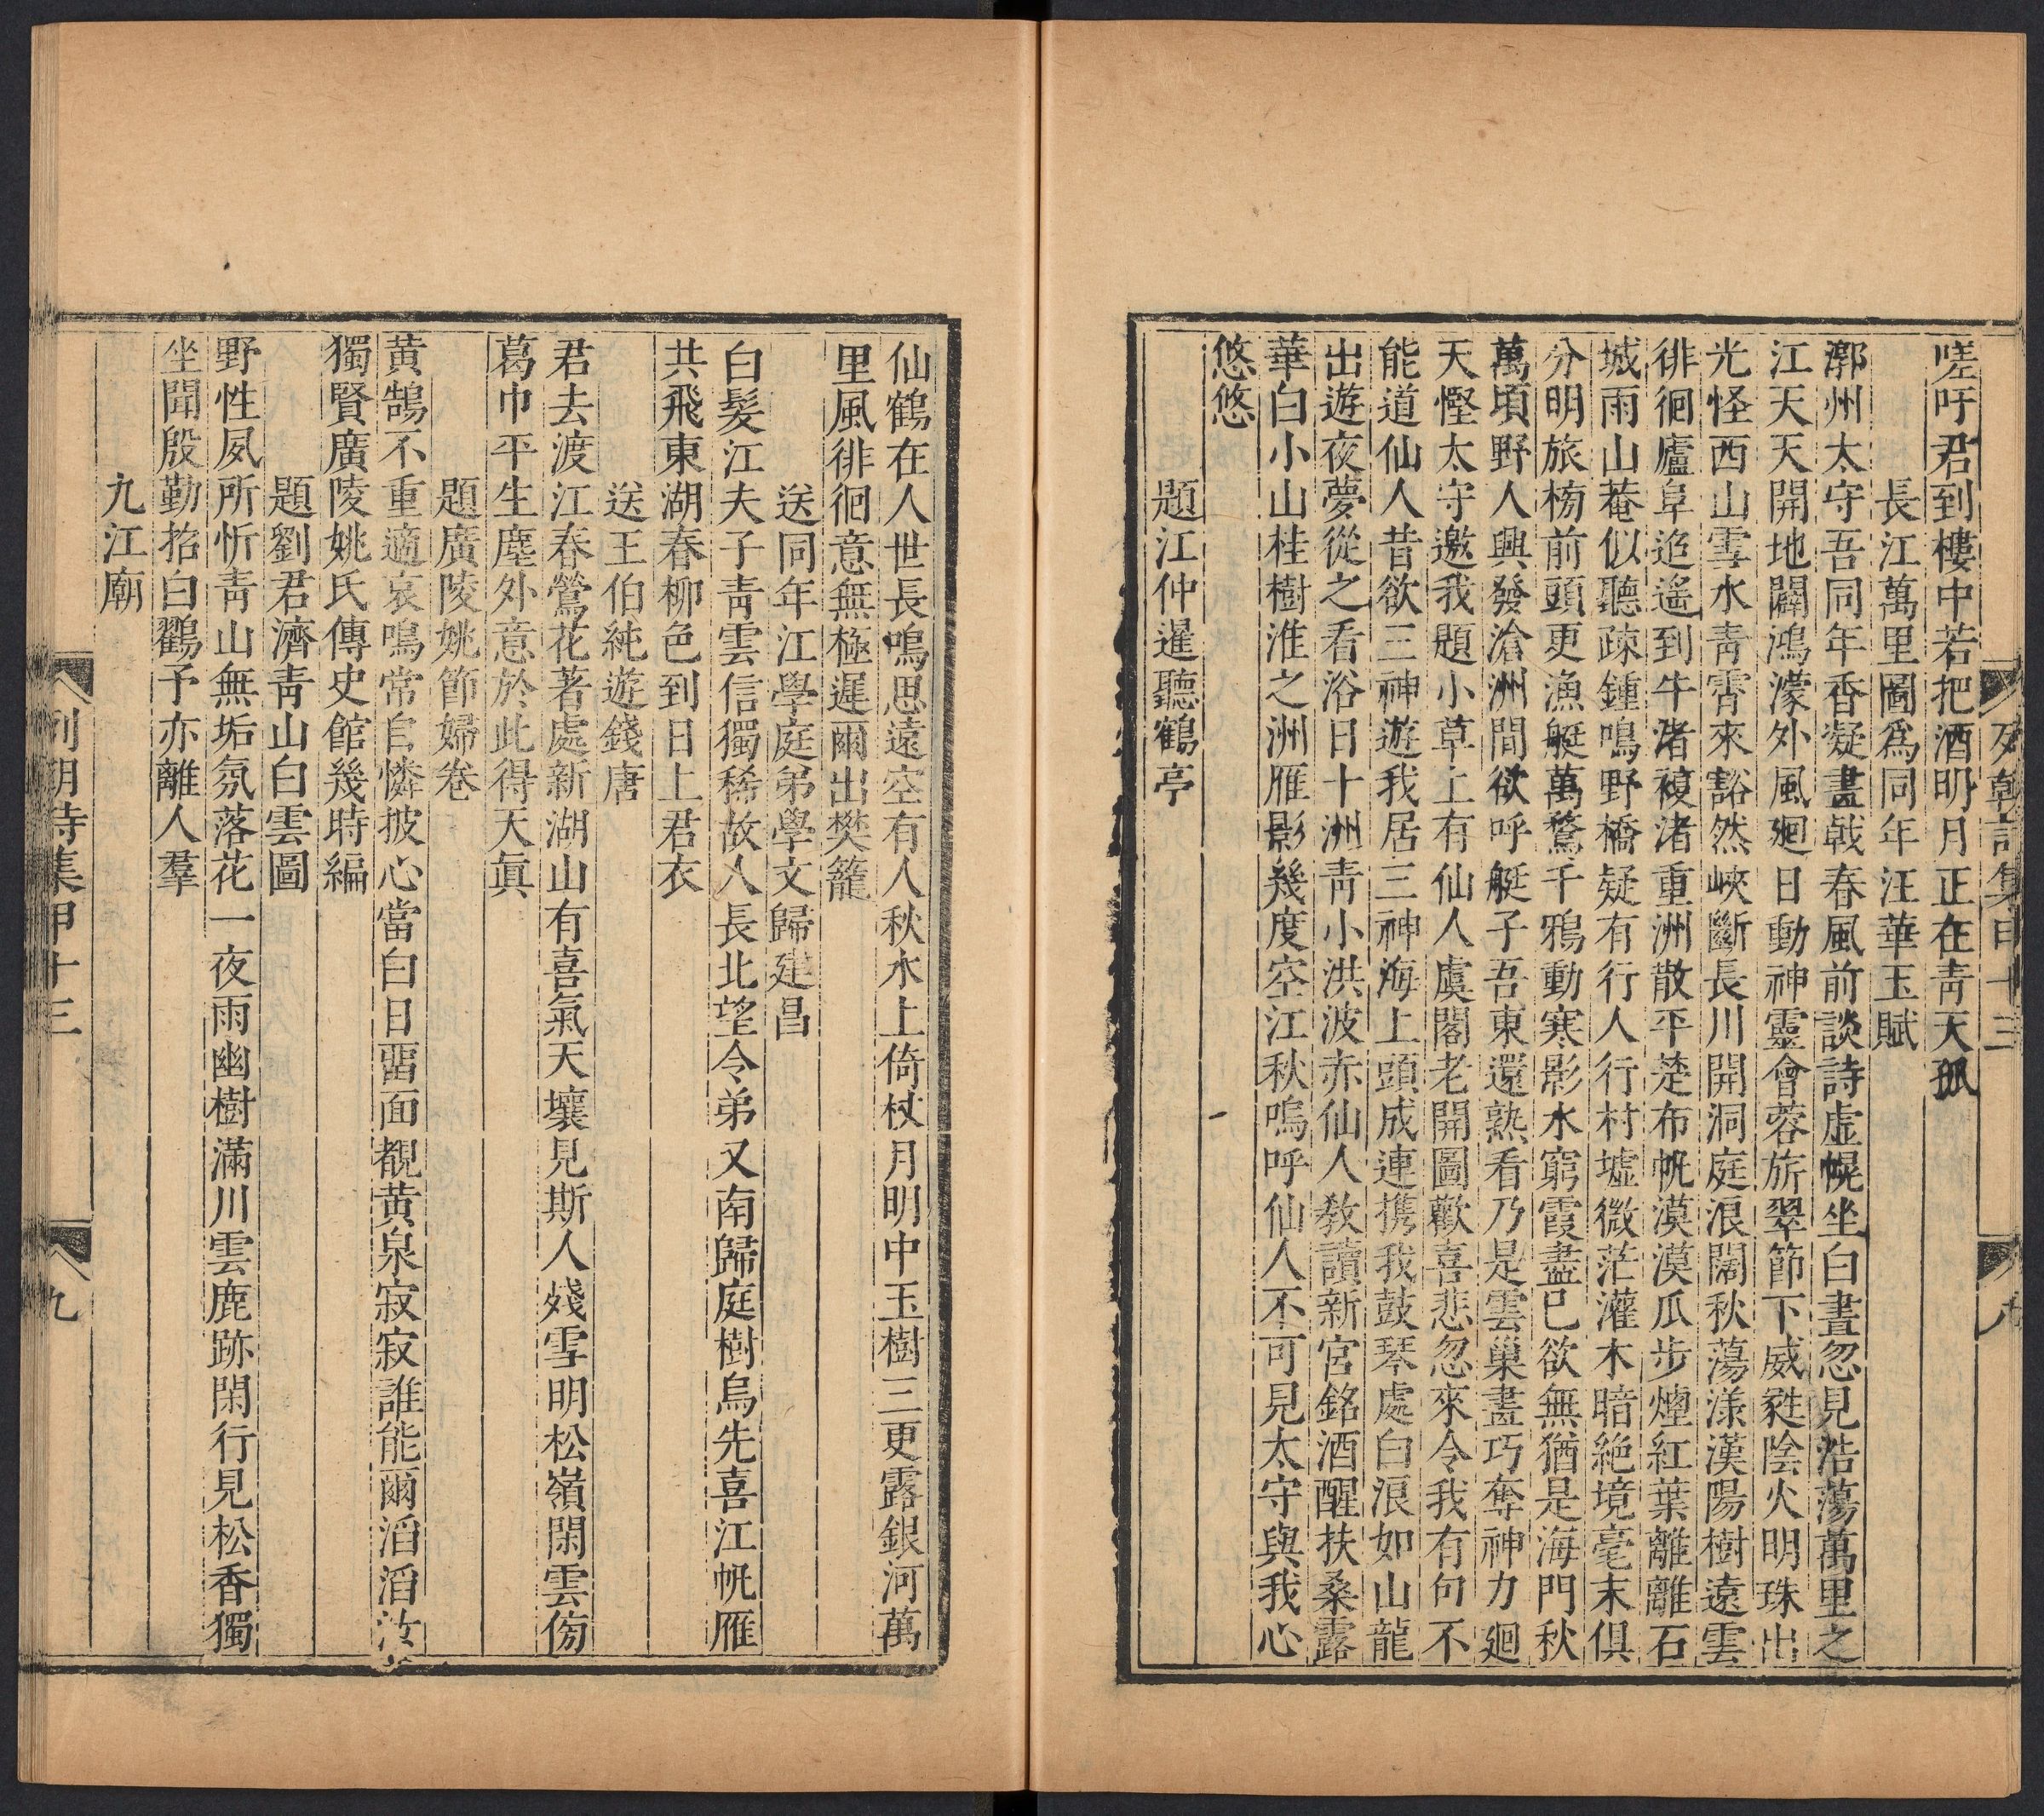 嗟吁君到樓中若把酒明月正在靑天孤
長江萬里圖爲同年汪華玉賦
鄱州太守吾同年香凝畫戟春風前談詩虛幌坐白晝忽見浩蕩萬里之
江天天開地闢鴻濛外風廻日動神靈會蓉旂翠節下威甤陰火明珠出
光怪西山雪水靑霄來豁然峽斷長川開洞庭浪闊秋蕩漾漢陽樹遠雲
徘徊廬阜迢遙到牛渚複渚重洲散平楚布帆漠漠瓜步煙紅葉離離石
城雨山菴似聽疎鍾鳴野橋疑有行人行村墟微茫灌木暗絶境毫末俱
分明旅榜前頭更漁艇萬鶩千鴉動寒影水窮霞盡已欲無猶是海門秋
萬頃野人興發滄洲間欲呼艇子吾東還熟看乃是雲巢畫巧奪神力廻
天慳太守邀我題小草上有仙人虞閣老開圖歡喜悲忽來令我有句不
能道仙人昔欲三神遊我居三神海上頭成連携我鼓琴處白浪如山龍
出遊夜夢從之看浴日十洲靑小洪波赤仙人教讀新宮銘酒醒扶桑露
華白小山桂樹淮之洲雁影幾度空江秋嗚呼仙人不可見太守與我心
悠悠
題江仲暹聽鶴亭
仙鶴在人世長鳴思遠空有人秋水上倚杖月明中玉樹三更露銀河萬
里風徘徊意無極遲爾出樊籠
送同年江學庭弟學文歸建昌
白髮江夫子靑雲信獨稀故人長北望令弟又南歸庭樹烏先喜江帆雁
共飛東湖春柳色到日上君衣
送王伯純遊錢唐
君去渡江春鶯花著處新湖山有喜氣天壤見斯人殘雪明松嶺閑雲傍
葛巾平生塵外意於此得天眞
題廣陵姚節婦卷
黄鵠不重適哀鳴常自憐披心當白日𠟃面覩黄泉寂寂誰能爾滔滔汝
獨賢廣陵姚氏傳史館幾時編
題劉君濟靑山白雲圖
野性夙所忻靑山無垢氛落花一夜雨幽樹滿川雲鹿跡閑行見松香獨
坐聞殷勤招白鸛予亦離人羣
九江廟
列朝詩集甲十三
九